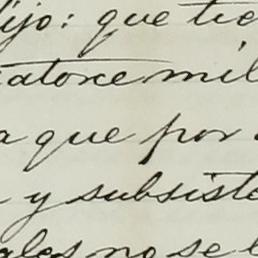 ijo: que tie
atorce mil
a que por
y subsiste
ales no se l